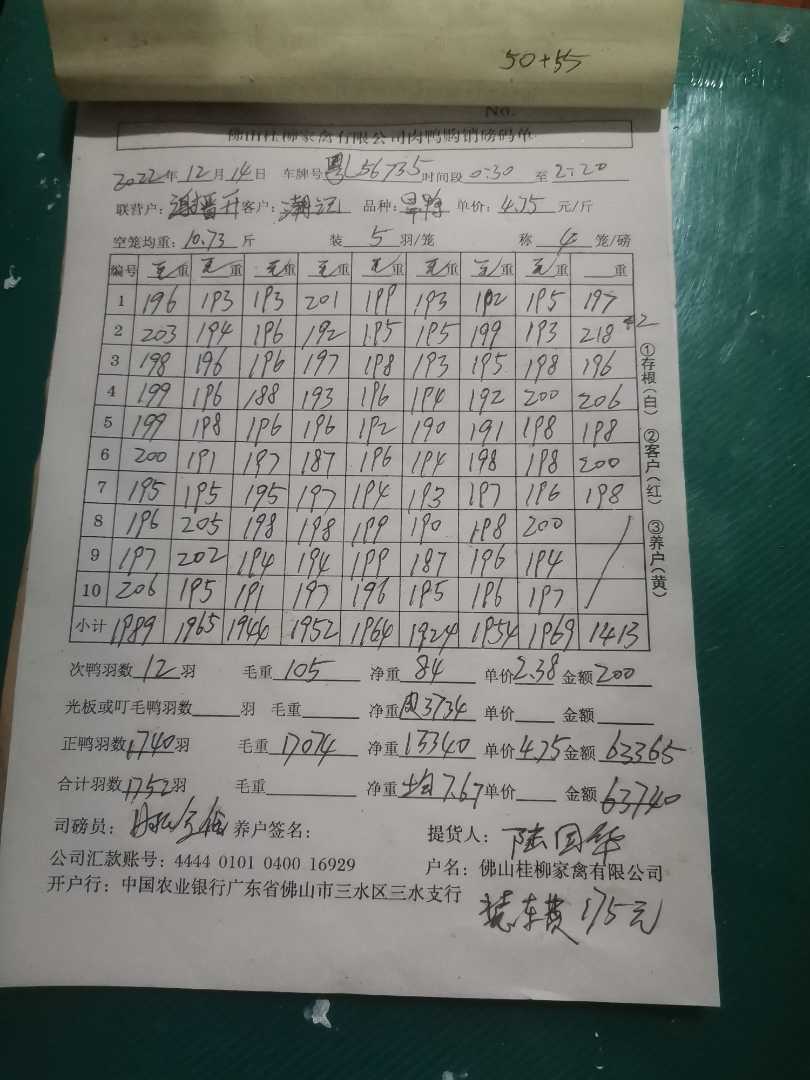 50+55
No.
佛山桂柳家禽有限公司肉鸭购销磅码单
2022年12月14日 车牌号粤L56735时间段0:30 至2:20
联营户: 客户:潮记 品种: 单价:4.75 元/斤
空笼均重:10.73 斤 装 5 羽/笼 称 4 笼/磅
编号 毛重 毛重 毛重 毛重 毛重 毛重 毛重 毛重 重
1 196 193 193 201 199 193 192 195 197
2 203 194 196 192 195 195 199 193 218
3 198 196 196 197 198 193 195 198 196
4 199 196 188 193 196 194 192 200 206
5 199 198 196 196 192 190 191 198 198
6 200 191 197 187 196 194 198 198 200
7 195 195 195 197 194 193 197 196 198
8 196 205 198 198 199 190 198 200
9 197 202 194 194 199 187 196 194
10 206 195 191 197 196 195 196 197
小计 1989 1965 1944 1952 1964 1924 1954 1969 1413
①存根(白) ②客户(红) ③养户(黄)
次鸭羽数12羽 毛重105 净重84 单价2.38 金额200
光板或叮毛鸭羽数 羽 毛重 净重 3734 单价 金额
正鸭羽数1740羽 毛重17074 净重13340 单价4.75 金额63365
合计羽数1752羽 毛重 净重均7.67 单价 金额63740
司磅员: 养户签名: 提货人:陆国华
公司汇款账号:4444 0101 0400 16929 户名:佛山桂柳家禽有限公司
开户行:中国农业银行广东省佛山市三水区三水支行
装车费175元